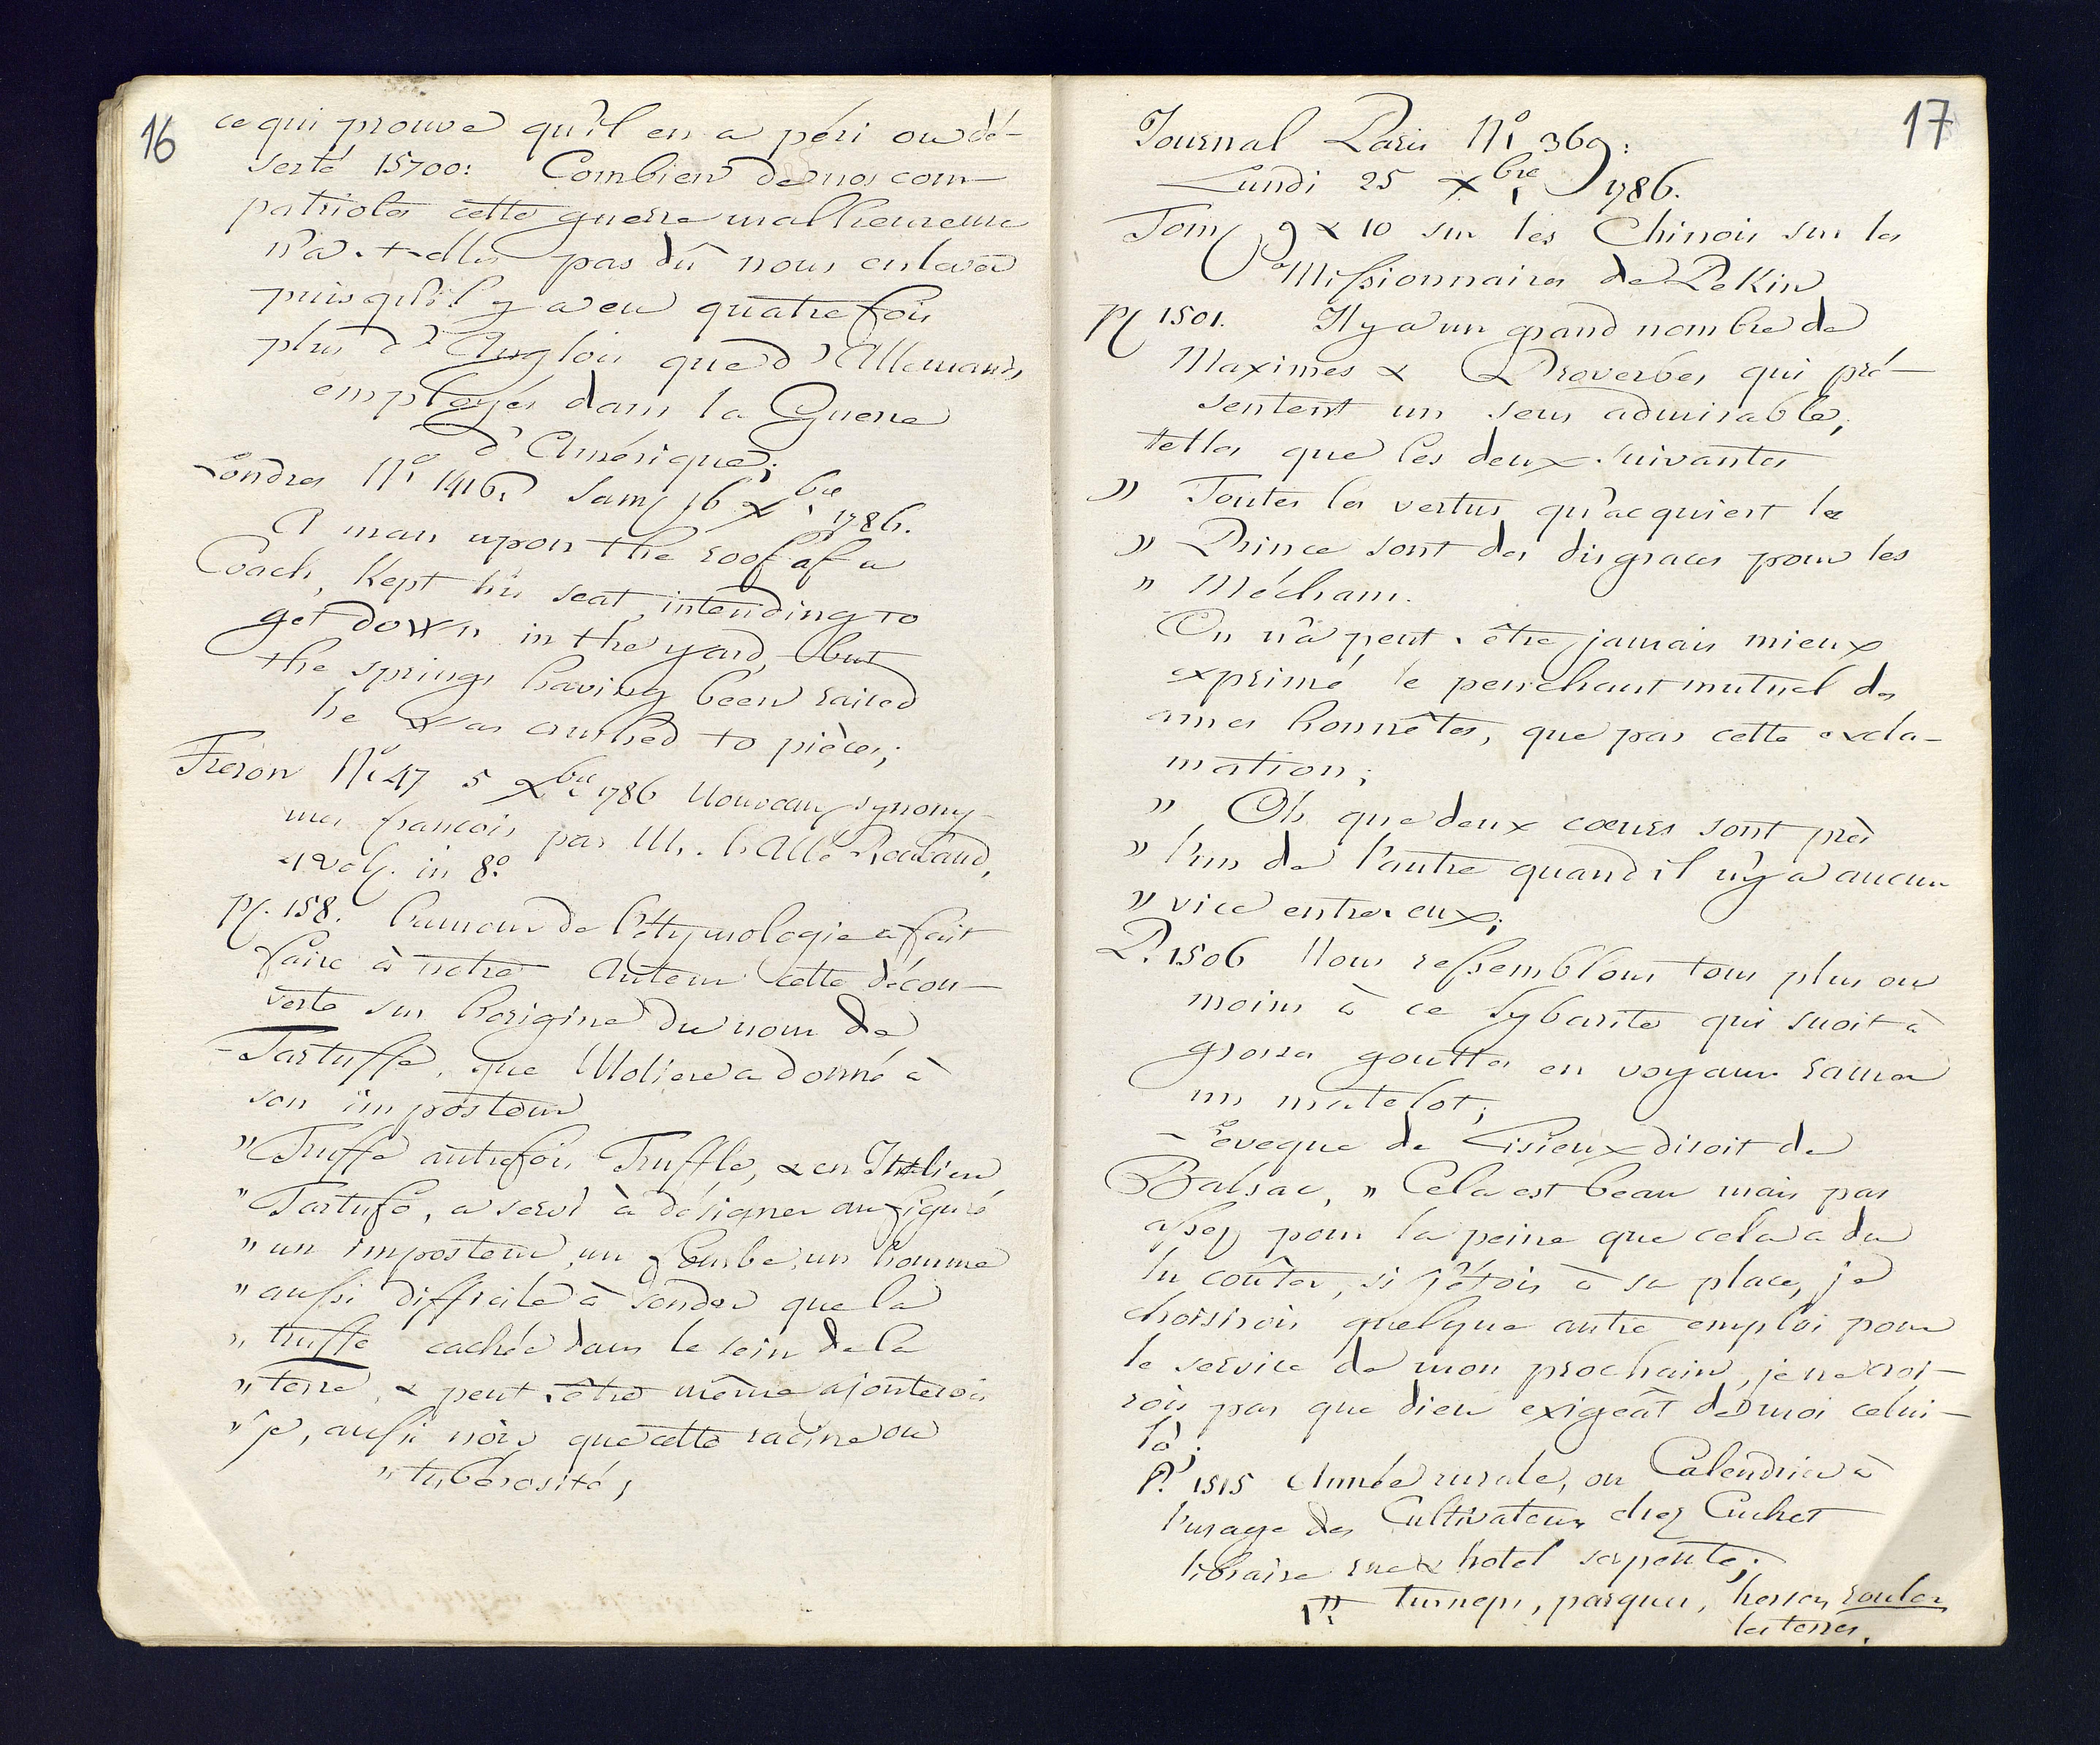 16
ce qui prouve qu'il en a péri ou dé-
serté 15700: Combien de nos com-
patriotes cette guerre malheureuse
n'a-t-elle pas dû nous enlever
puisqu'il y a eu quatre fois
plus d'Anglois que d'Allemands
employés dans la Guerre
d'Amérique;
Londres N.° 1416. Sam 16 Xbre 1786.
A man upon the roof of a
Coach, Kept his seat, intending to
get down in the yard, but
the springs having been raised
he was crushed to pièces;
Freron N.° 47 5 Xbre 1786 Nouveaux synony-
mes francois par Mr. l'Abbé Roubaud,
4 vol. in 8.°
p. 158. l'amour de l'étymologie a fait
faire à notre Auteur cette décou-
verte sur l'origine du nom de
Tartuffe, que Moliere a donné à
son imposteur
" Truffe autrefois Truffle, & en Italien
" Tartufo, a servi à désigner au figuré
" un imposteur, un fourbe, un homme
" aussi difficile à sonder que la
" truffe cachée dans le sein de la
" terre, & peut-être même ajouterois
" je, aussi noir que cette racine ou
" tubérosité;
17
Journal Paris N.° 369:
Lundi 25 Xbre 1786.
Tom 9 & 10 sur les Chinois sur les
Missionnaires de Pekin
p. 1501. Il y a un grand nombre de
Maximes & Proverbes qui pré-
sentent un sens admirable,
telles que les deux suivantes
" Toutes les vertus qu'acquiert le
" Prince sont des disgraces pour les
" Méchans.
On n'a peut-être jamais mieux
exprimé le penchant mutuel des
ames honnêtes, que par cette excla-
mation;
" Oh que deux cœurs sont près
" l'un de l'autre quand il n'y a aucun
" vice entre eux;
P. 1506 Nous ressemblons tous plus ou
moins à ce Sybarite qui suoit à
grosses gouttes en voyant ramer
un matelot;
L'eveque de Lisieux disoit de
Balsac, " Cela est beau mais pas
assez pour la peine que cela a du
lui coûter, si j'étois à sa place, je
choisirois quelque autre emploi pour
le service de mon prochain, je ne croi-
rois pas que dieu exigeât de moi celui-
là;
P. 1515 Année rurale, ou Calendrier à
l'usage des Cultivateurs chez Cuchet
libraire rue & hotel serpente;
turneps, parquer, herser, rouler
les terres.